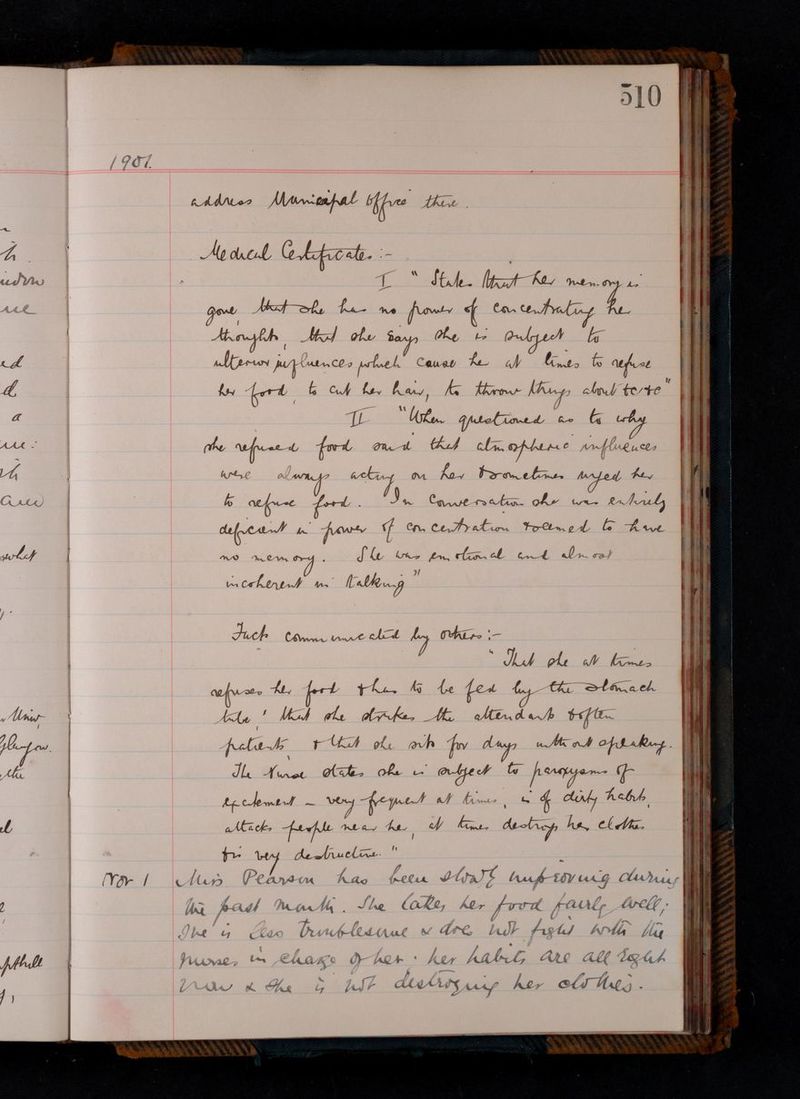 510
1901.
address Municipal Office there.
Medical Certificates:-
I " States that her memory is
gone, that she has no power of concentrating her
thoughts, that she says she is subject to
ulterior influences which cause her at times to refuse
her food, to cut her hair, to throw things about &c &c"
II "When questioned as to why
she refused food said that atmospheric influences
were always acting on her & sometimes urged her
to refuse food. In conversation she was entirely
deficient in power of concentration & seemed to have
no memory. She was emotional and almost
incoherent in talking"
Facts communicated by others:-
"That she at times
refuses her food & has to be fed by the stomach
tube, that she strikes the attendants & often
patients & that she sits for days without speaking.
The Nurse states she is subject to paroxysms of
excitement - very frequent at times, is of dirty habits,
attacks people near her, at times destroys her clothes
& is very destructive."
Nov 1 Miss Pearson has been slowly improving during
the past month. She takes her food fairly well;
She is less troublesome & does not fight with the
nurses in charge of her. her habits are all right
now & she is not destroying her clothes.